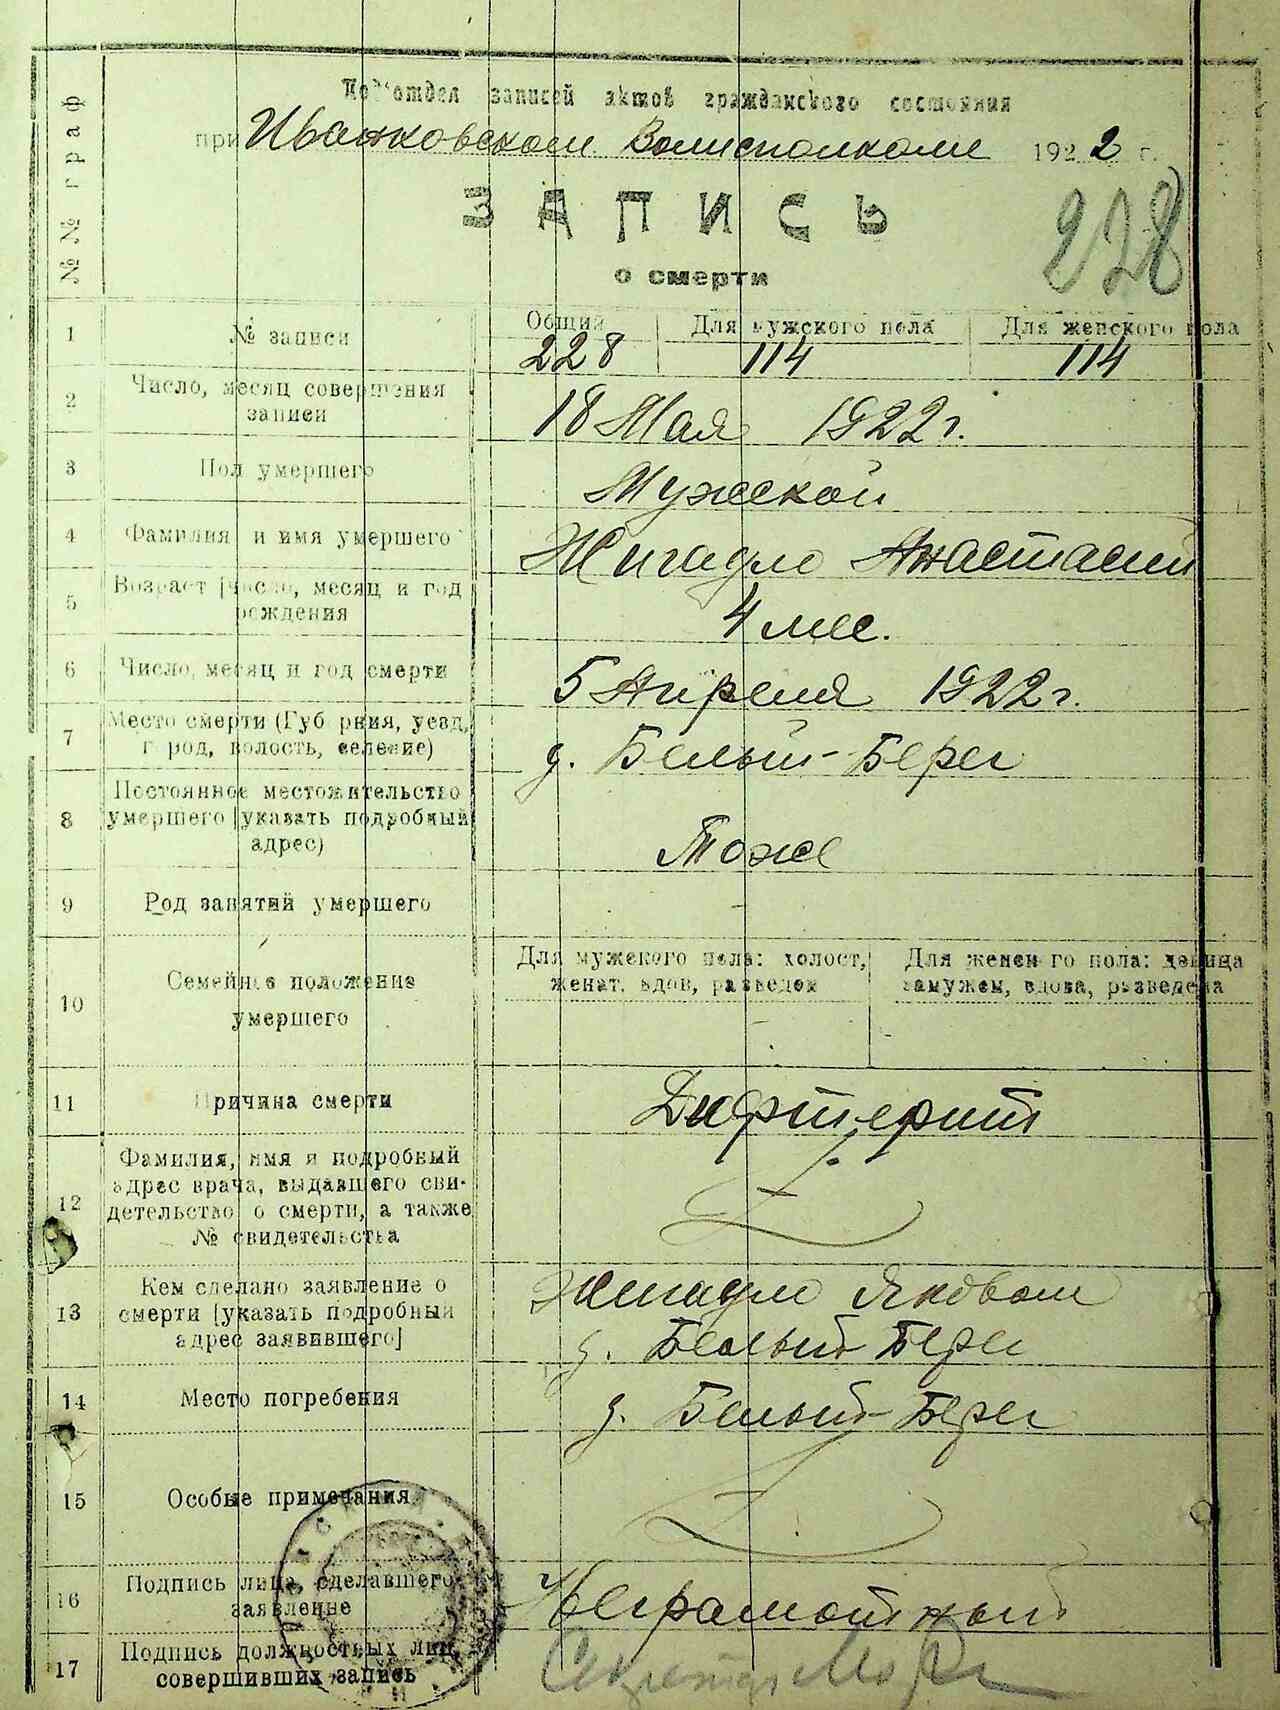 №№ граф
Подотдел записей актов гражданского состояния
при Иванковском Волисполкоме 1922 г.
ЗАПИСЬ
228
о смерти
1 № записи Общий Для мужского пола Для женского пола
228 114 114
2 Число, месяц совершения
записи
18 Мая 1922 г.
3 Пол умершего Мужской
4 Фамилия и имя умершего Жигадло Анастасий
5 Возраст [число, месяц и год
рождения
4 мес.
6 Число, месяц и год смерти 5 Апреля 1922 г.
7 Место смерти (Губерния, уезд,
город, волость, селение)
д. Белый-Берег
8 Постоянное местожительство
умершего [указать подробный
адрес)
Тоже
9 Род занятий умершего -
10 Семейное положение
умершего
Для мужского пола: холост,
женат, вдов, разведен
Для женского пола: девица
замужем, вдова, разведена
11 Причина смерти Дифтерит
12 Фамилия, имя и подробный
адрес врача, выдавшего сви-
детельство о смерти, а также
№ свидетельства
13 Кем сделано заявление о
смерти [указать подробный
адрес заявившего]
Жигадло Яковом
д. Белый-Берег
14 Место погребения д. Белый-Берег
15 Особые примечания
16 Подпись лица, сделавшего
заявление
Неграмотный
17 Подпись должностных лиц,
совершивших запись
Секретарь